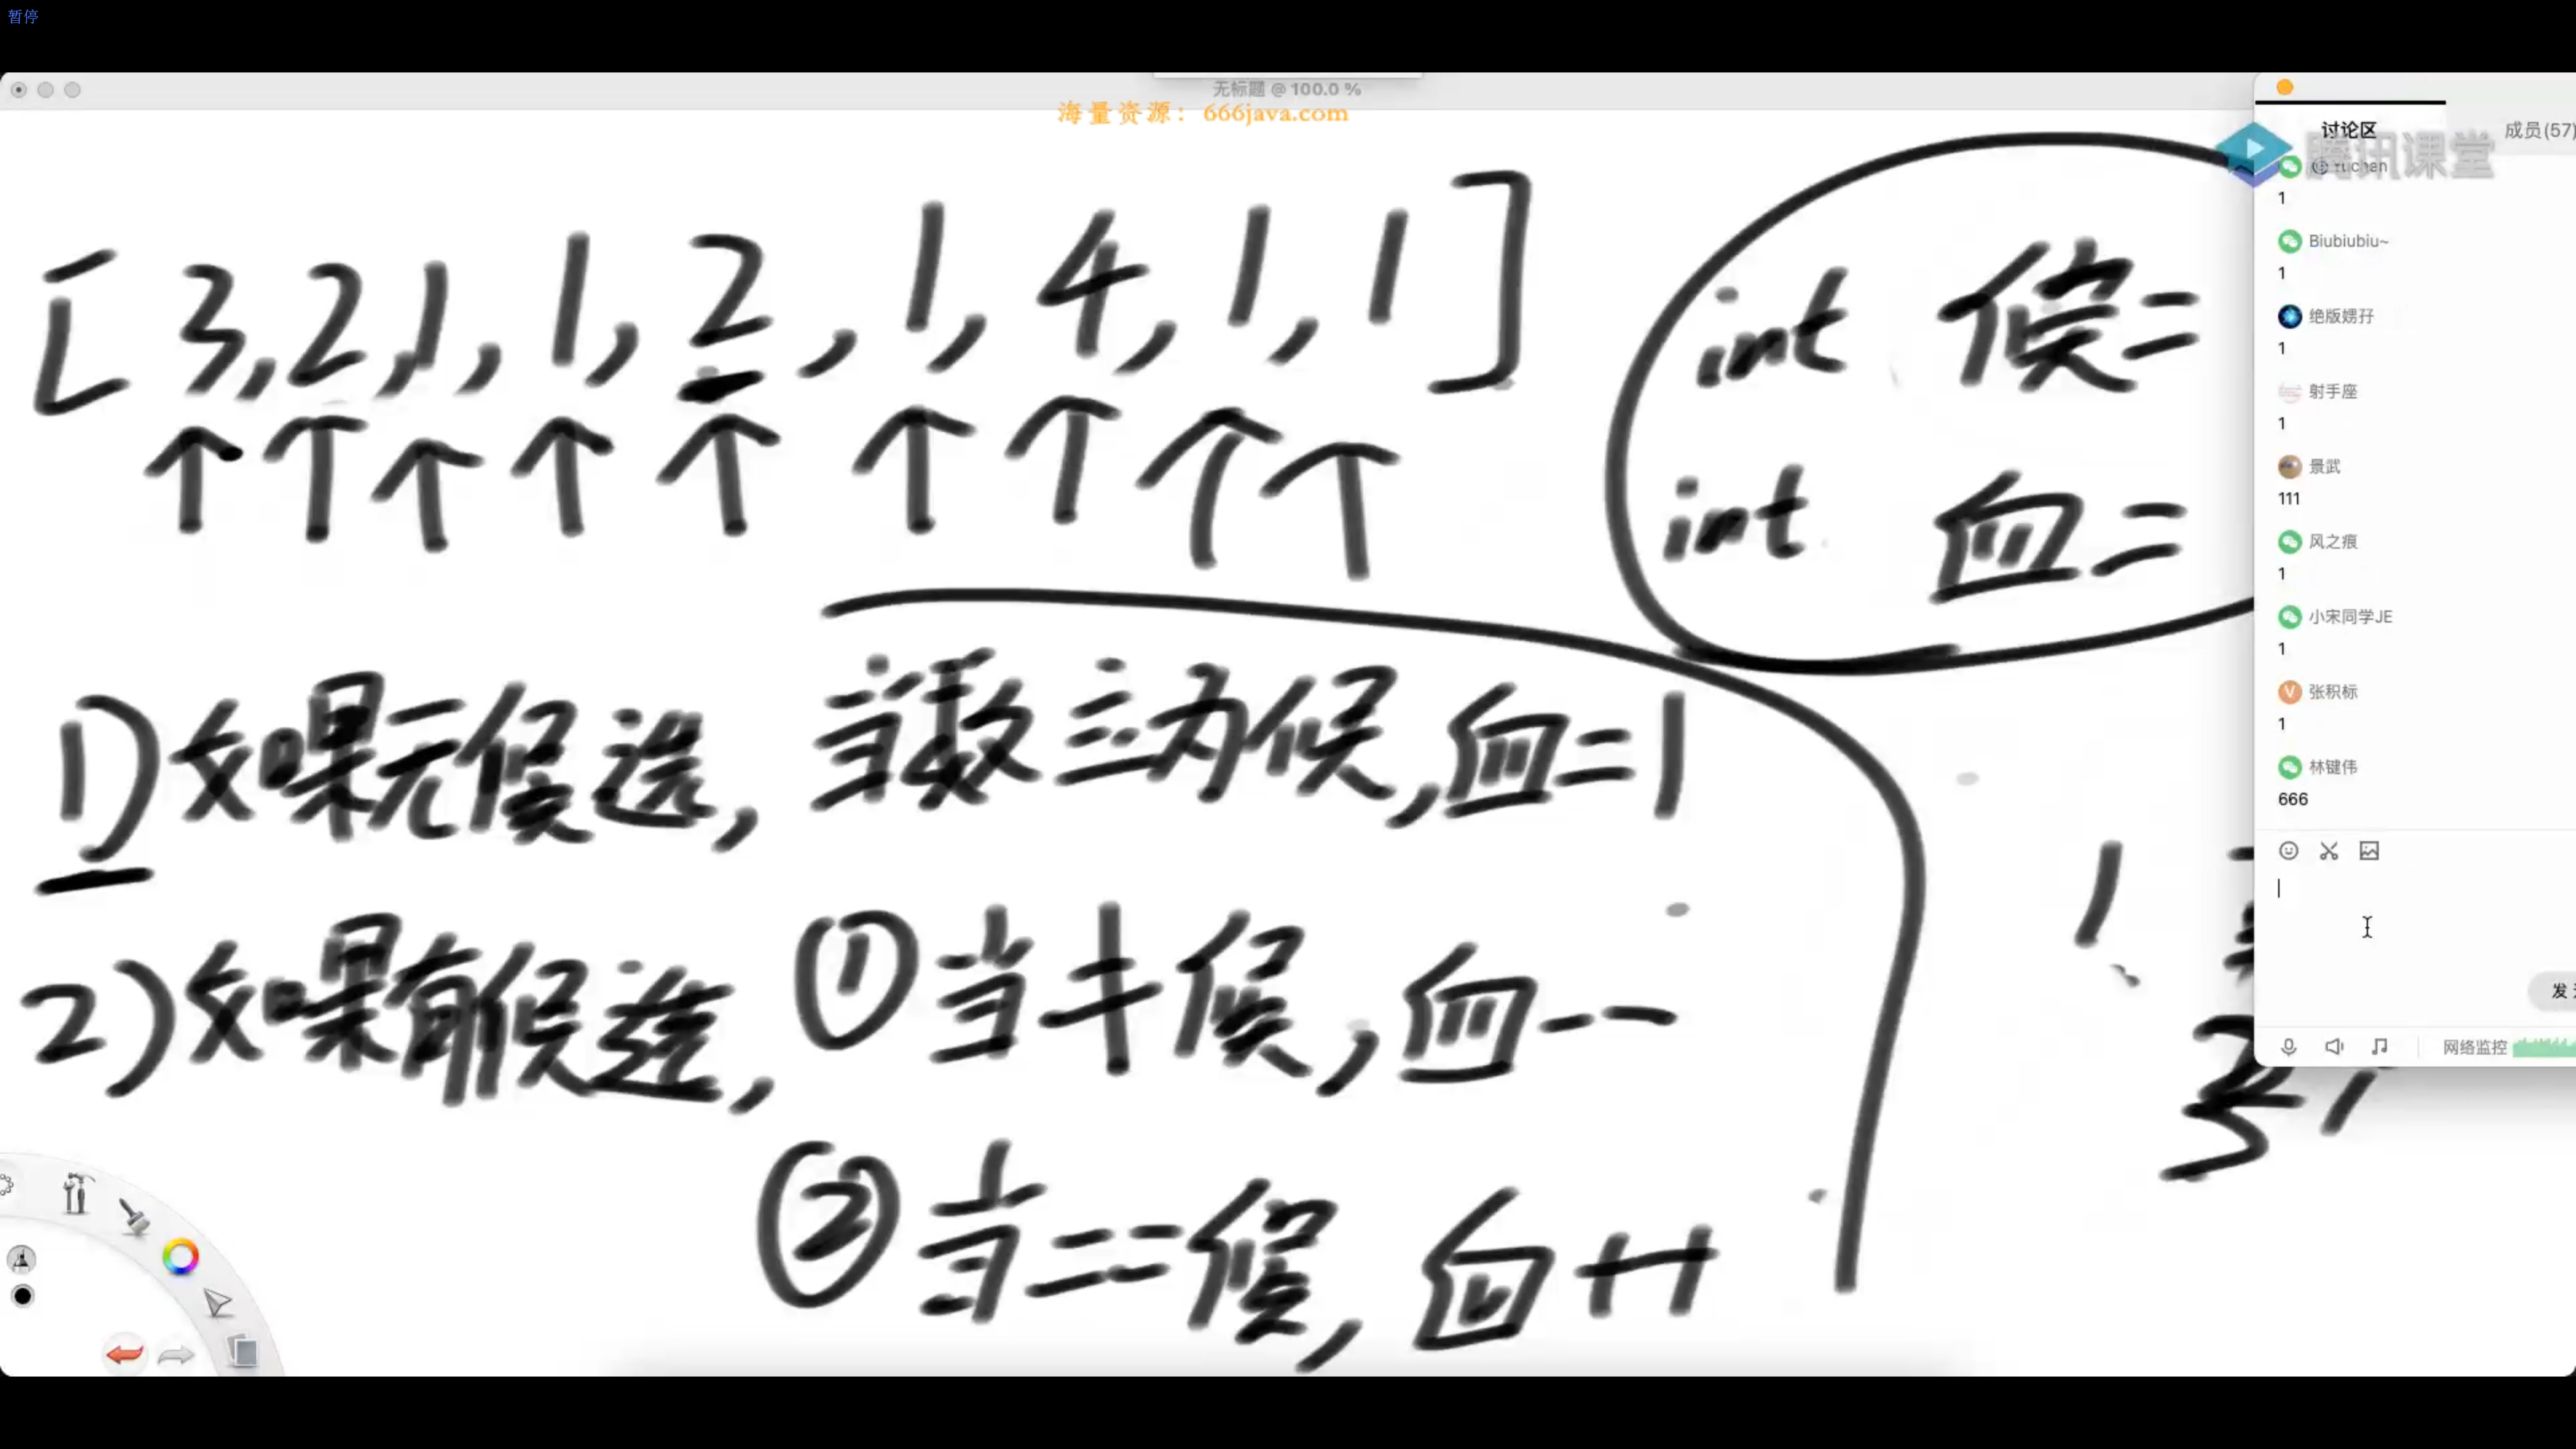 暂停
无标题 @ 100.0 %
海量资源：666java.com
[3,2,1,1,2,1,4,1,1]
int 候=
int 血=
1)如果无候选，当数三为候，血=1
2)如果有候选，①当≠候，血--
②当==候，血++
1
讨论区
成员(57)
腾讯课堂
1
Biubiubiu~
1
绝版娚孖
1
射手座
1
景武
111
风之痕
1
小宋同学JE
1
张积标
1
林键伟
666
网络监控